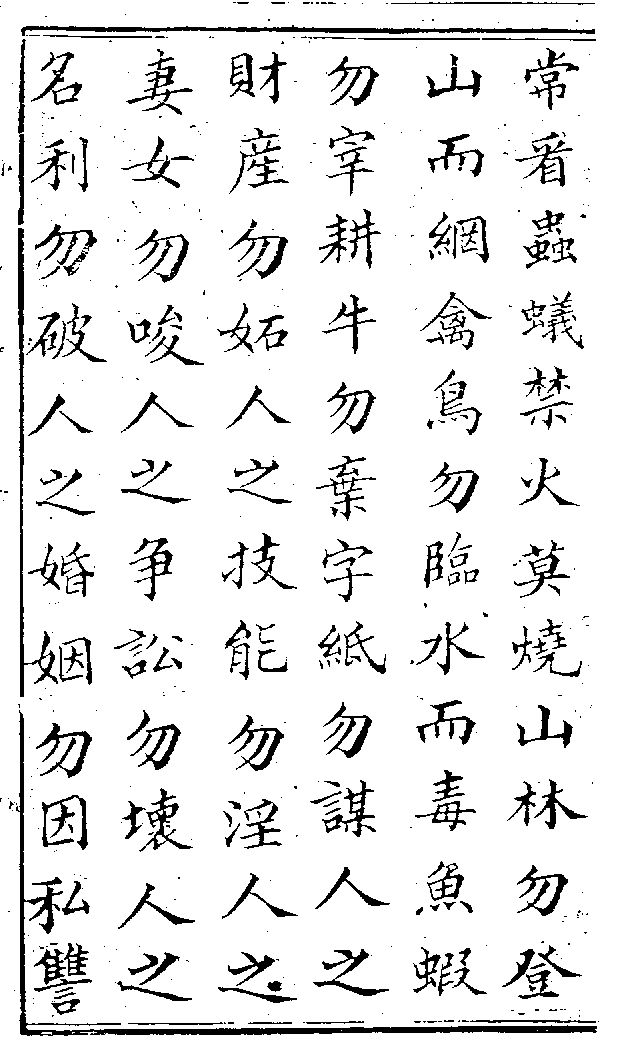 常看蟲蟻禁火莫燒山林勿登
山而網禽鳥勿臨水而毒魚蝦
勿宰耕牛勿棄字紙勿謀人之
財産勿妬人之技能勿淫人之
妻女勿唆人之争訟勿壞人之
名利勿破人之婚姻勿因私讐